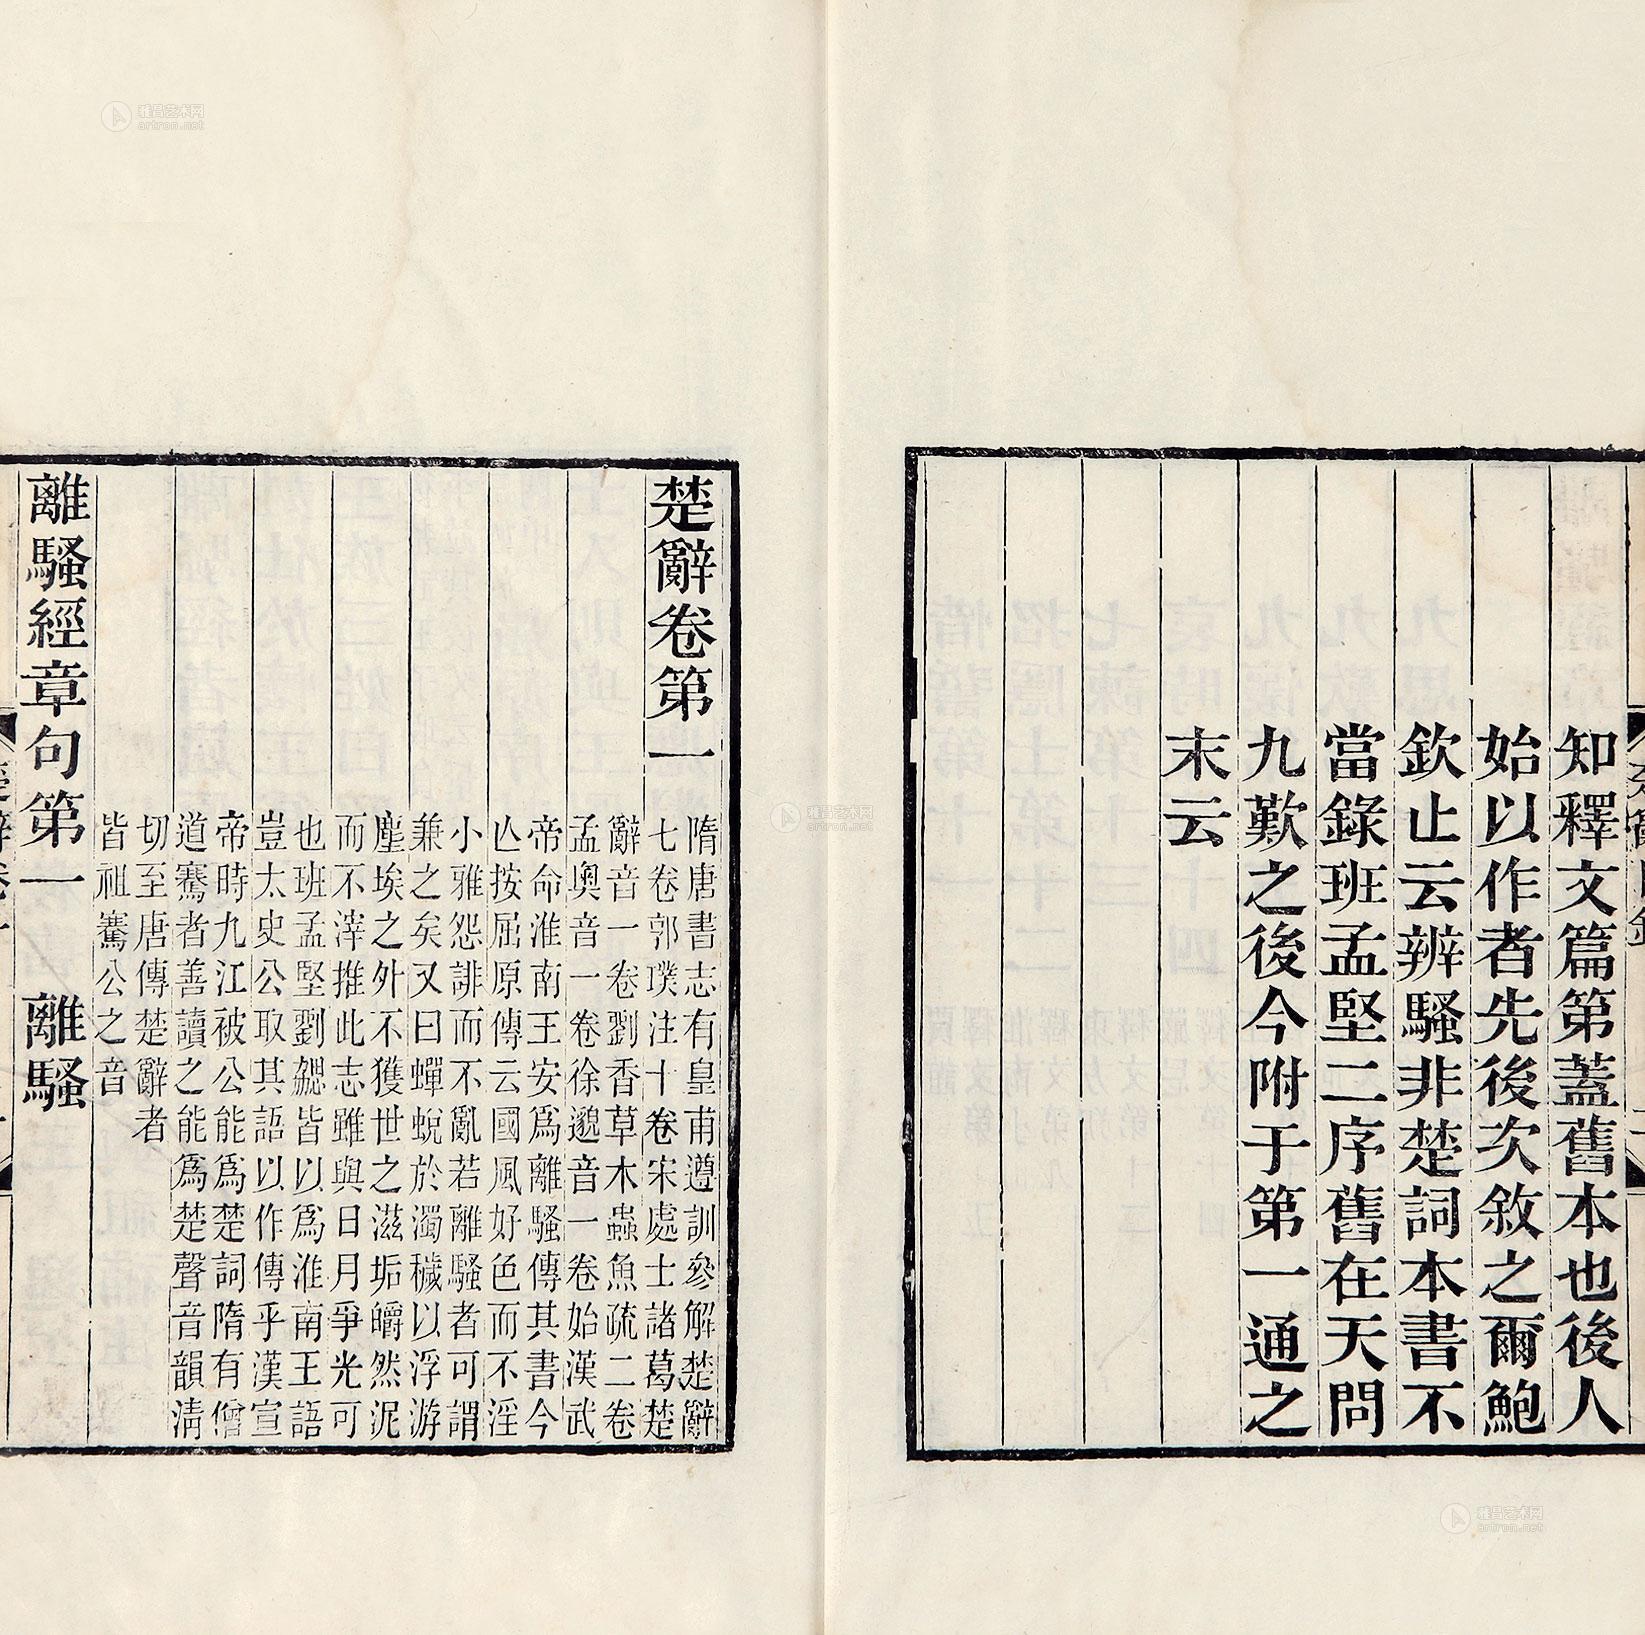 知釋文篇第蓋舊本也後人
始以作者先後次敘之爾鮑
欽止云辨騷非楚詞本書不
當錄班孟堅二序舊在天問
九歎之後今附于第一通之
末云
楚辭卷第一
隋唐書志有皇甫遵訓參解楚辭
七卷郭璞注十卷宋處士諸葛楚
辭音一卷劉杳草木蟲魚疏二卷
孟奧音一卷徐邈音一卷始漢武
帝命淮南王安爲離騷傳其書今
亾按屈原傳云國風好色而不淫
小雅怨誹而不亂若離騷者可謂
兼之矣又曰蟬蛻於濁穢以浮游
塵埃之外不獲世之滋垢皭然泥
而不滓推此志雖與日月爭光可
也班孟堅劉勰皆以爲淮南王語
豈太史公取其語以作傳乎漢宣
帝時九江被公能爲楚詞隋有僧
道騫者善讀之能爲楚聲音韻清
切至唐傳楚辭者
皆祖騫公之音
離騷經章句第一 離騷
雅昌艺术网
artron.net